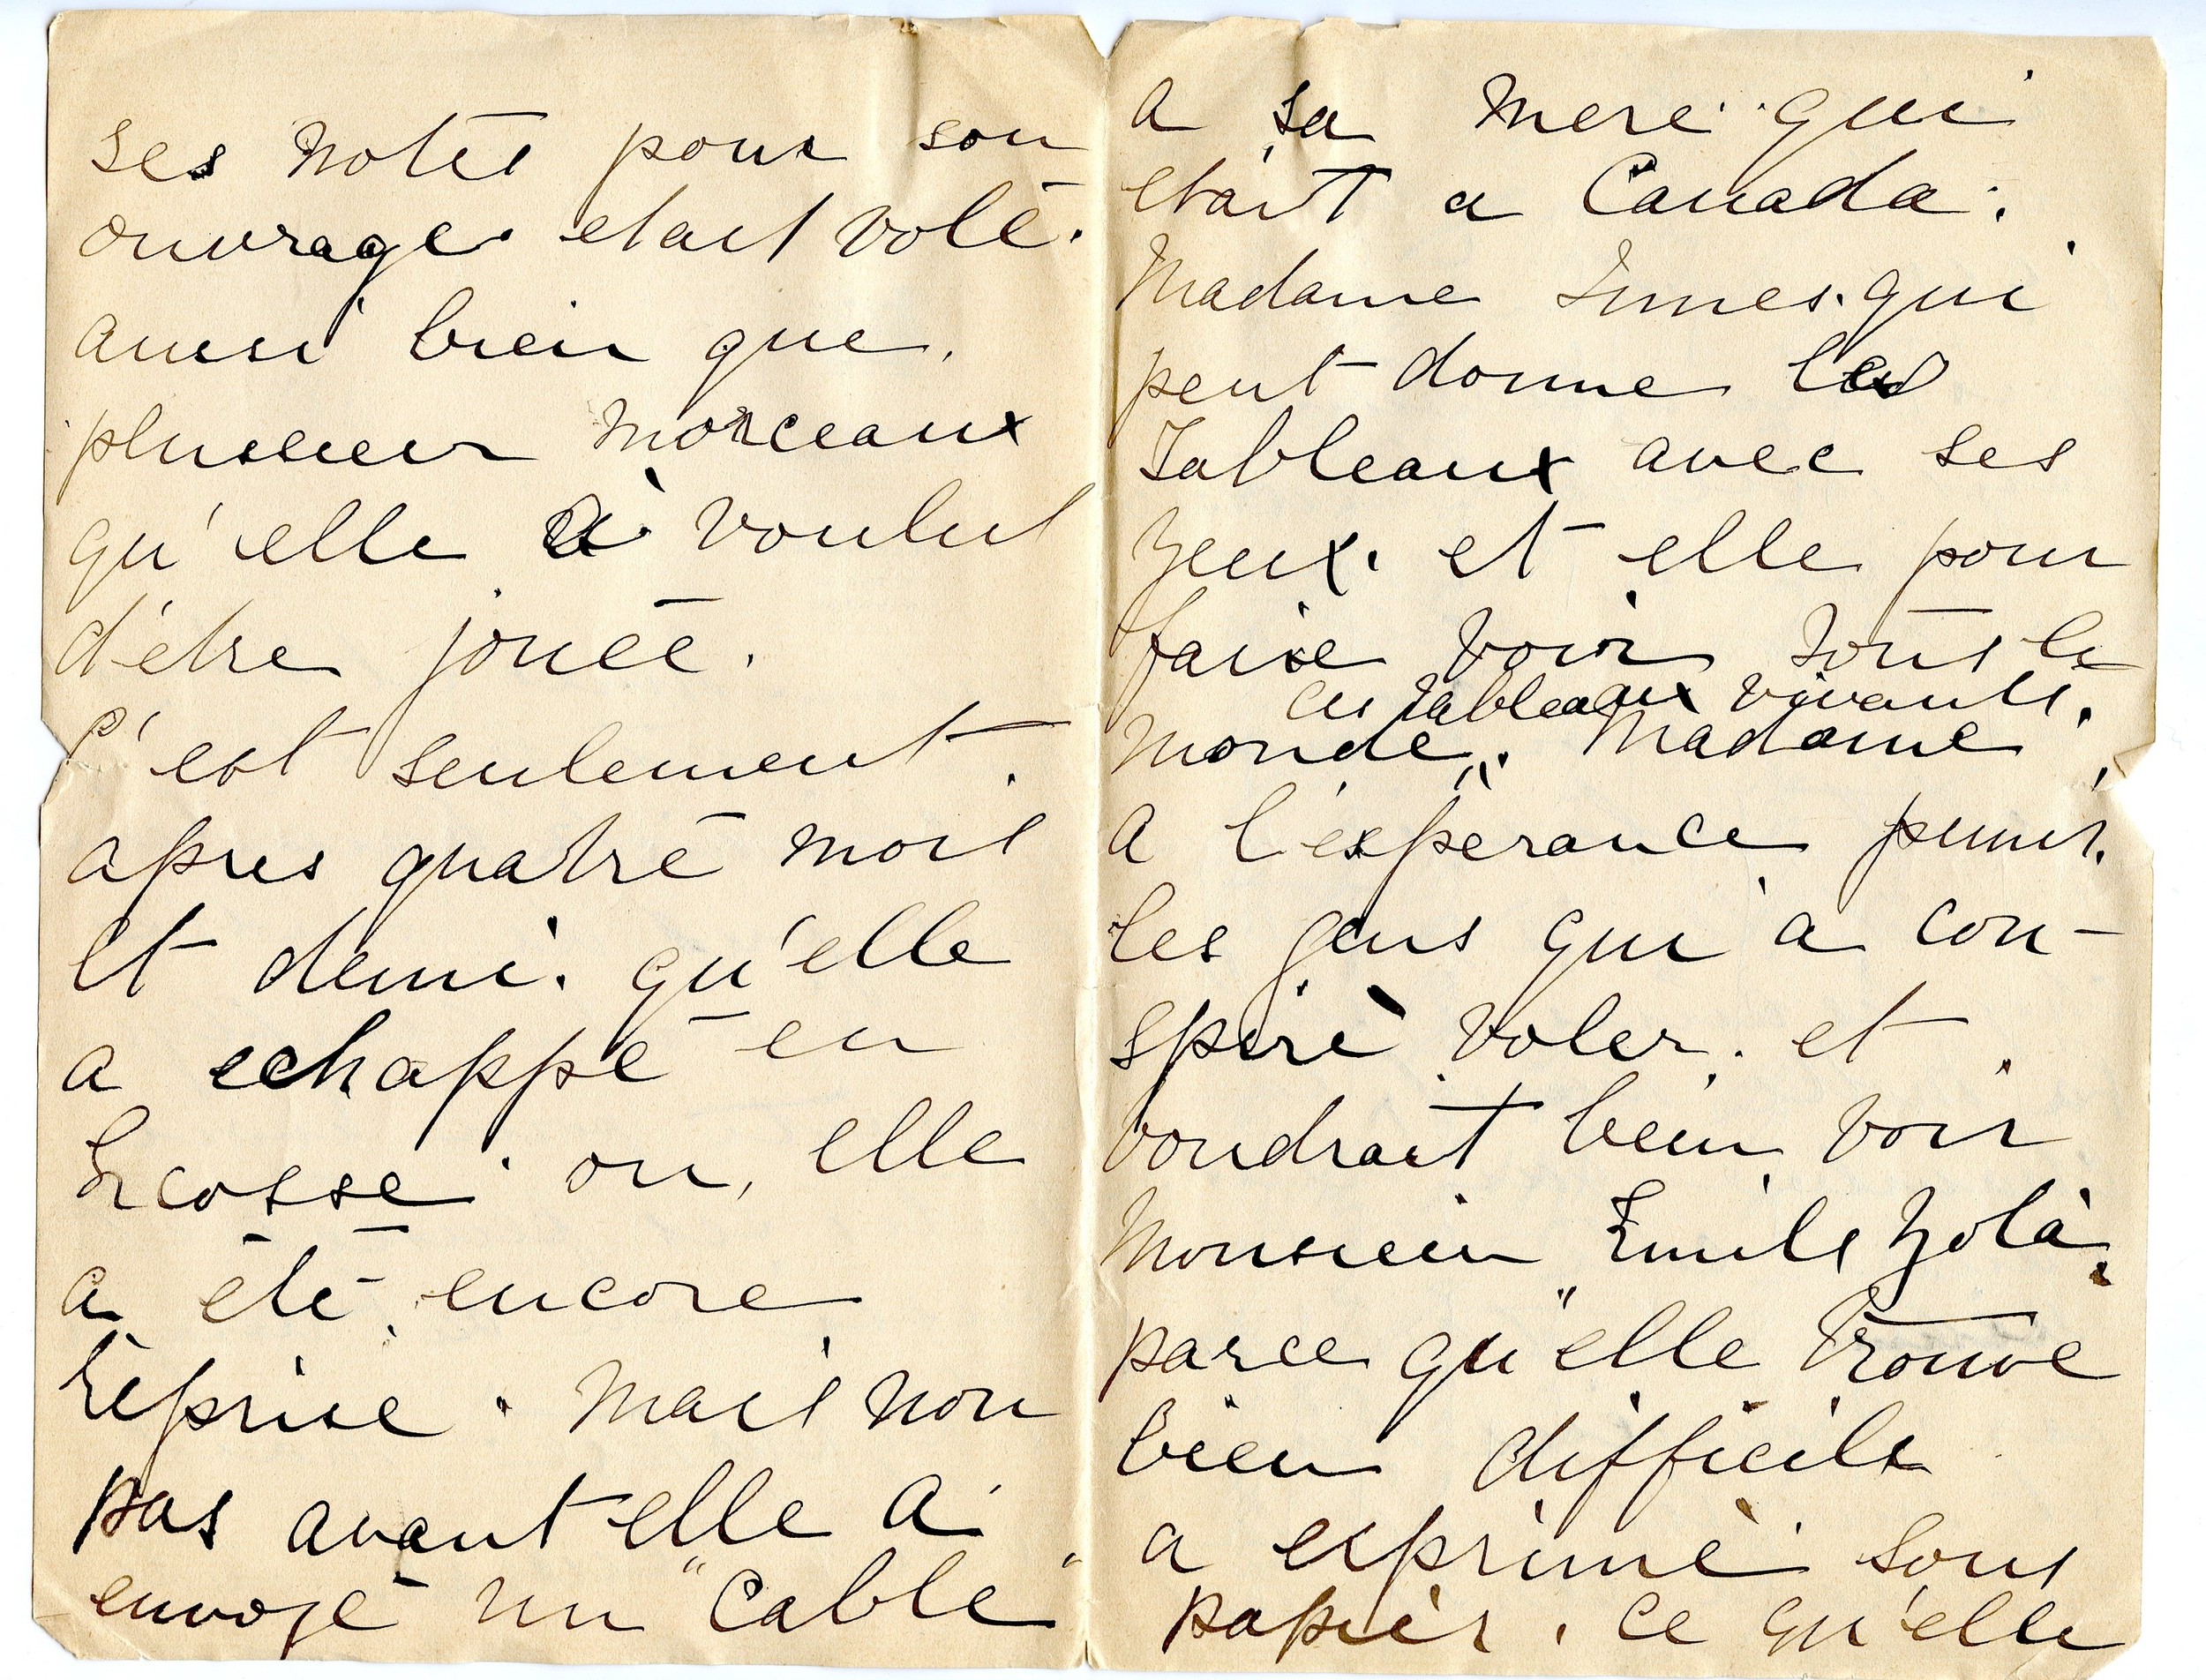 ses notes pour son
ouvrage. etait volé.
aussi bien que.
plusieur morceaux
qu'elle à voulut
d'être jouée.
C'est seulement.
apres quatre mois
et demi. qu'elle
a echappé en
Ecosse. ou, elle
a été encore
réprise. Mais non
pas avant elle a
envoyé un "Cable"
a sa mere qui
etait a Canada.
Madame qui
peut donne les
Tableaux avec ses
yeux. et elle pour
faire voir tous le
ces tableaux vivants.
monde„. Madame
a l'éspérance punir.
les gens qui à con-
spiré voler. et
voudrait bein voir
Monsieur Emile Zola.
parce qu"elle trouve
bien difficile
a exprimé sous
papier. ce qu'elle